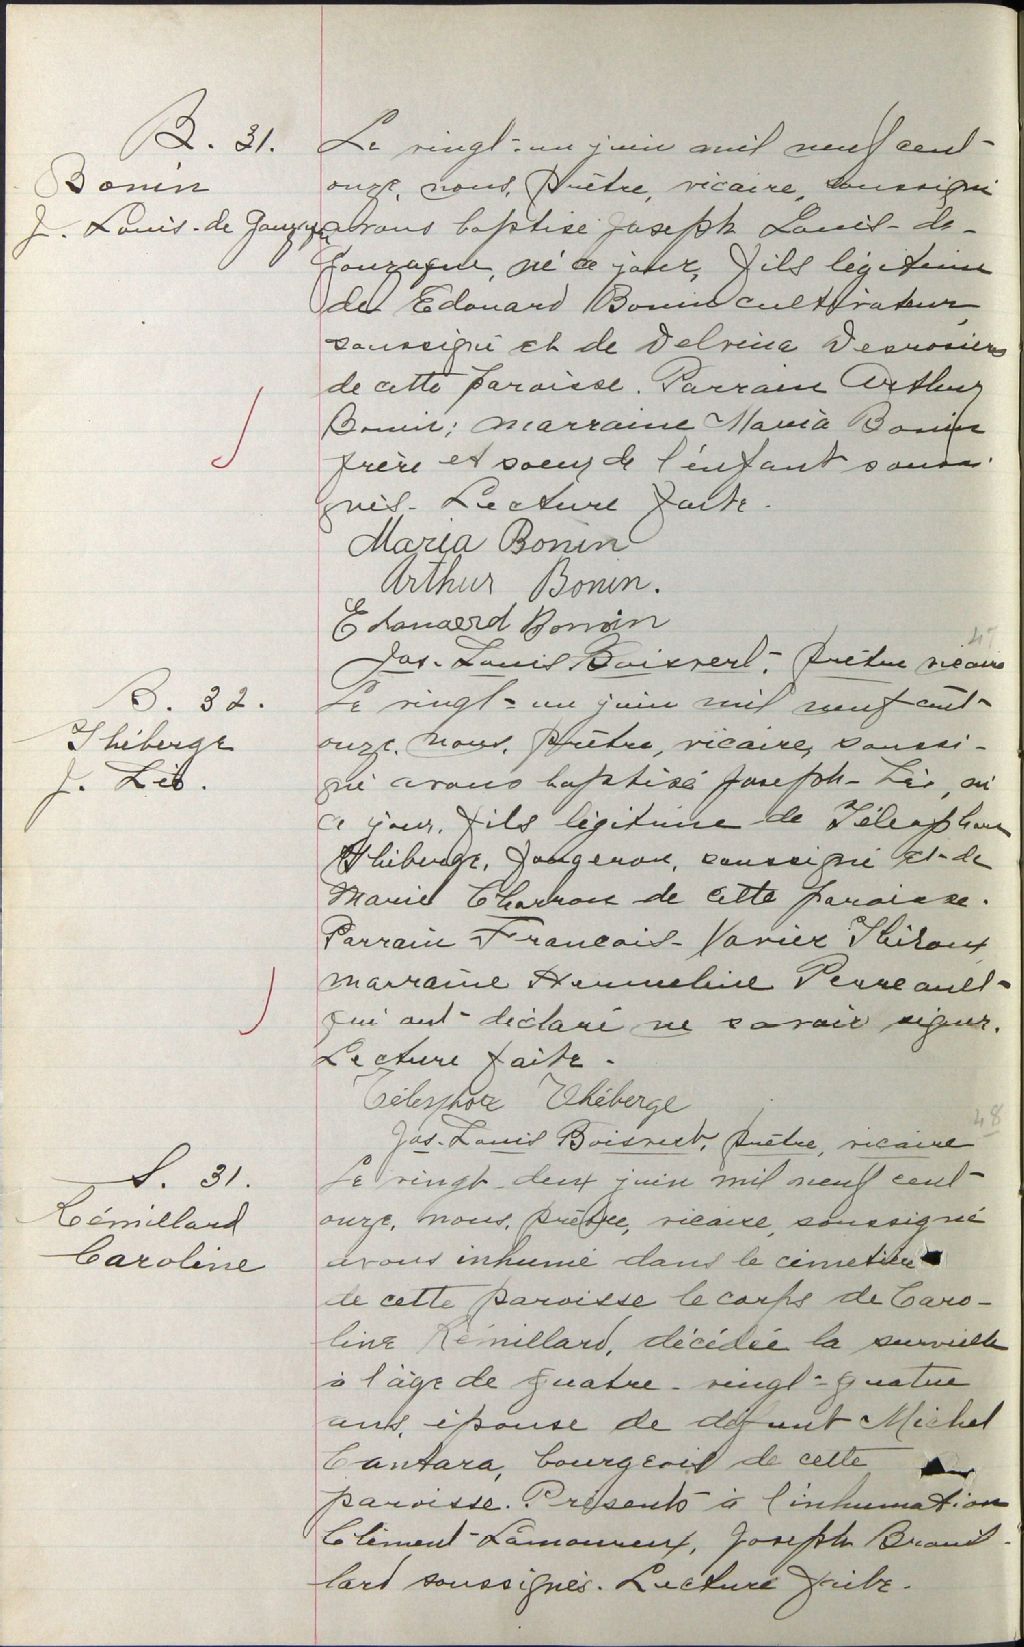 B. 31.
Bonin
J. Louis-de Gonzague
Le vingt-un juin mil neuf cent-
onze, nous, prêtre, vicaire, soussigné
avons baptisé Joseph Louis-de-
Gonzague, né ce jour, fils légitime
de Edouard Bonin cultivateur,
soussigné et de Delvina Desrosiers
de cette paroisse. Parrain Arthur
Bonin; marraine Maria Bonin
frère et soeur de l'enfant soussi-
gnés. Lecture faite.
Maria Bonin
Arthur Bonin.
Edouard Bonin
47
Jos. Louis Boisvert, prêtre vicaire
B. 32.
Théberge
J. Léo.
Le vingt-un juin mil neuf cent-
onze, nous, prêtre, vicaire, soussi-
gné avons baptisé Joseph-Léo, né
ce jour, fils légitime de Télesphore
Théberge, forgeron, soussigné et de
Marie Charron de cette paroisse.
Parrain François-Xavier Théroux
marraine Hermeline Perreault
qui ont déclaré ne savoir signer.
Lecture faite.
Télesphore Théberge
48
Jos. Louis Boisvert, prêtre, vicaire
S. 31.
Rémillard
Caroline
Le vingt-deux juin mil neuf cent-
onze, nous, prêtre, vicaire, soussigné
avons inhumé dans le cimetière
de cette paroisse le corps de Caro-
line Rémillard, décédée la surveille
à l'âge de quatre-vingt-quatre
ans, épouse de défunt Michel
Cantara, bourgeois de cette
paroisse. Présents à l'inhumation
Clément Lamoureux, Joseph Brouil-
lard soussignés. Lecture faite.